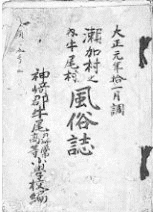 大正元年拾一月調
瀬加村之
内牛尾村
風俗誌
神崎郡牛尾高等小学校編